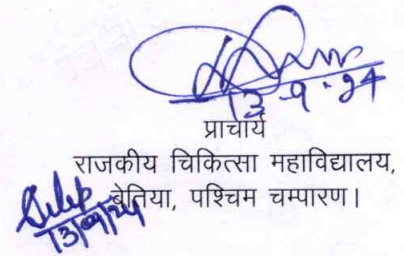 13-9-24
प्राचार्य
राजकीय चिकित्सा महाविद्यालय,
बेतिया, पश्चिम चम्पारण।
Dilip
13/09/24